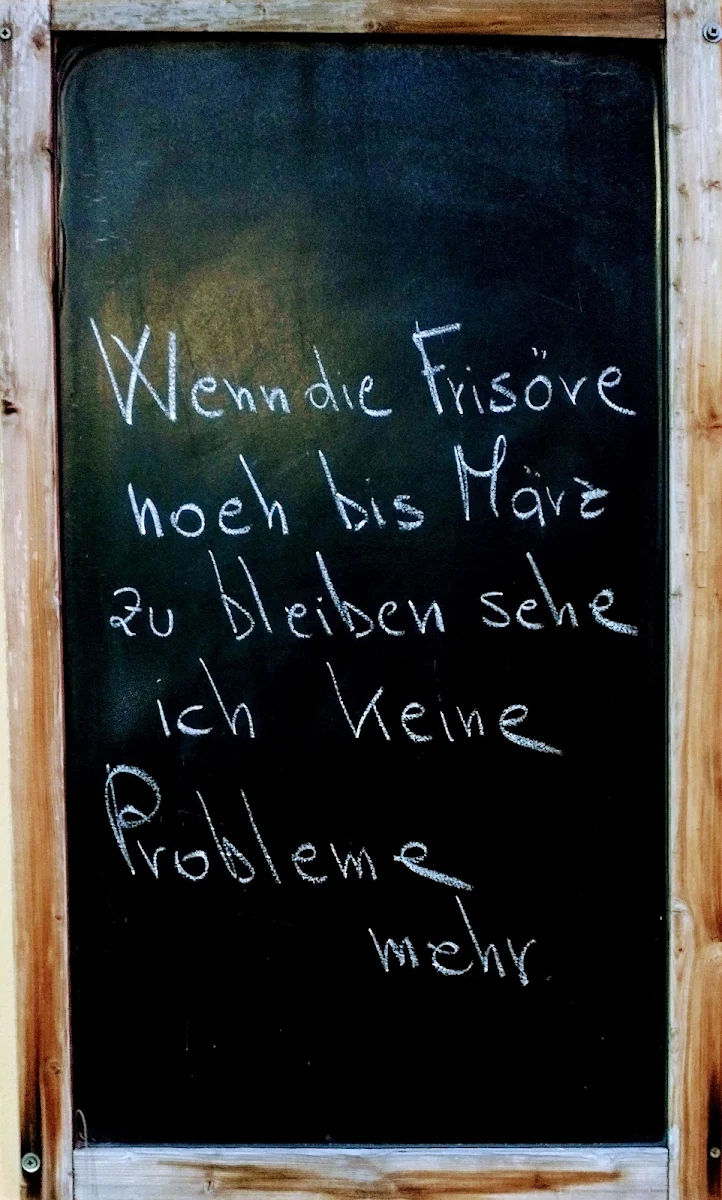 Wenn die Frisöre
noch bis März
zu bleiben sehe
ich keine
Probleme
mehr